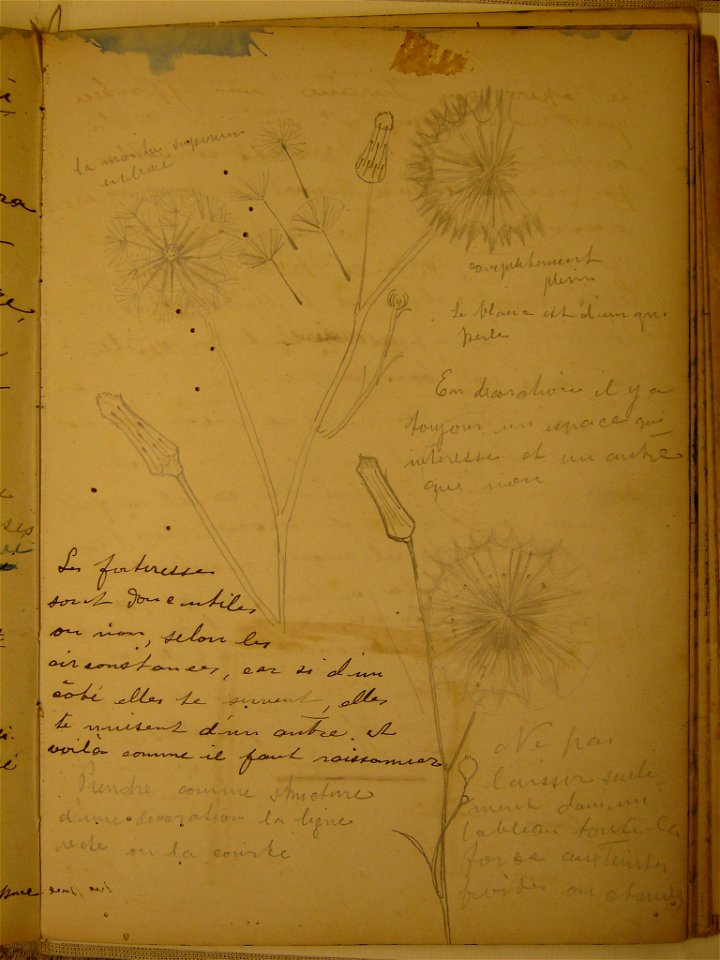 la montre supérieur
est
complètement
plein
Le blanc est d'un gris
perle
En decoration il y a
toujour un espace qui
interesse et un autre
que non
Les forteresse
sont donc utiles
ou non, selon les
circonstances, car si d'un
côté elles te servent, elles
te nuisent d'un autre. et
voilà comme il faut raissonner
Prendre comme structure
d'une decoration la ligne
recte ou la courbe
Ne pas
laisser seule-
ment dans un
tableau toute la
force aux teintes
froides ou